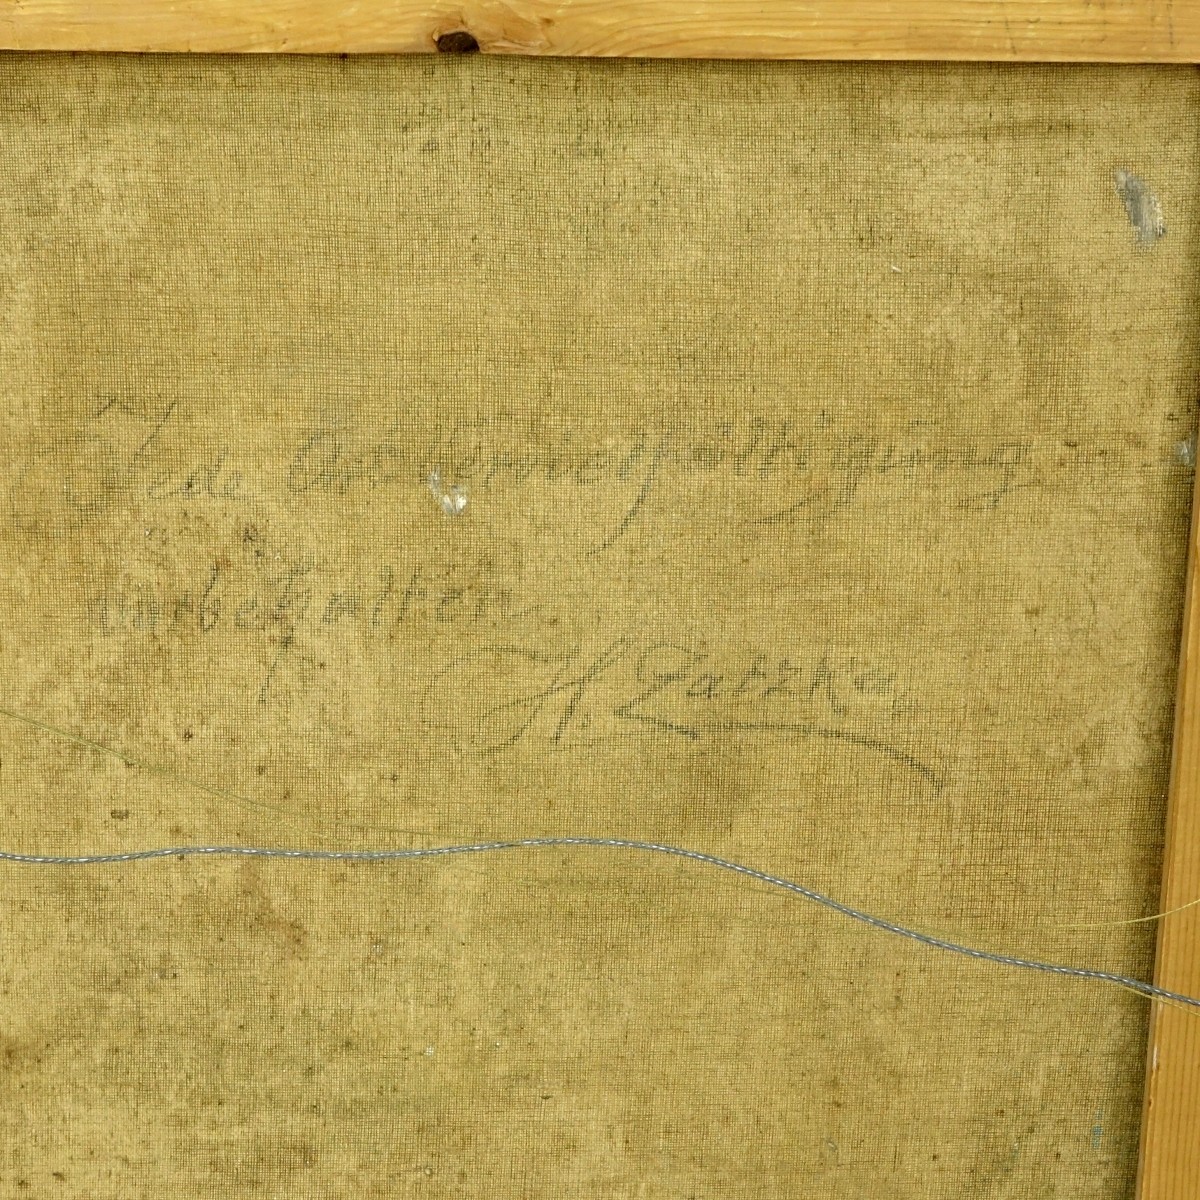 Jede Art Vervielfältigung
vorbehalten
H. Latzke